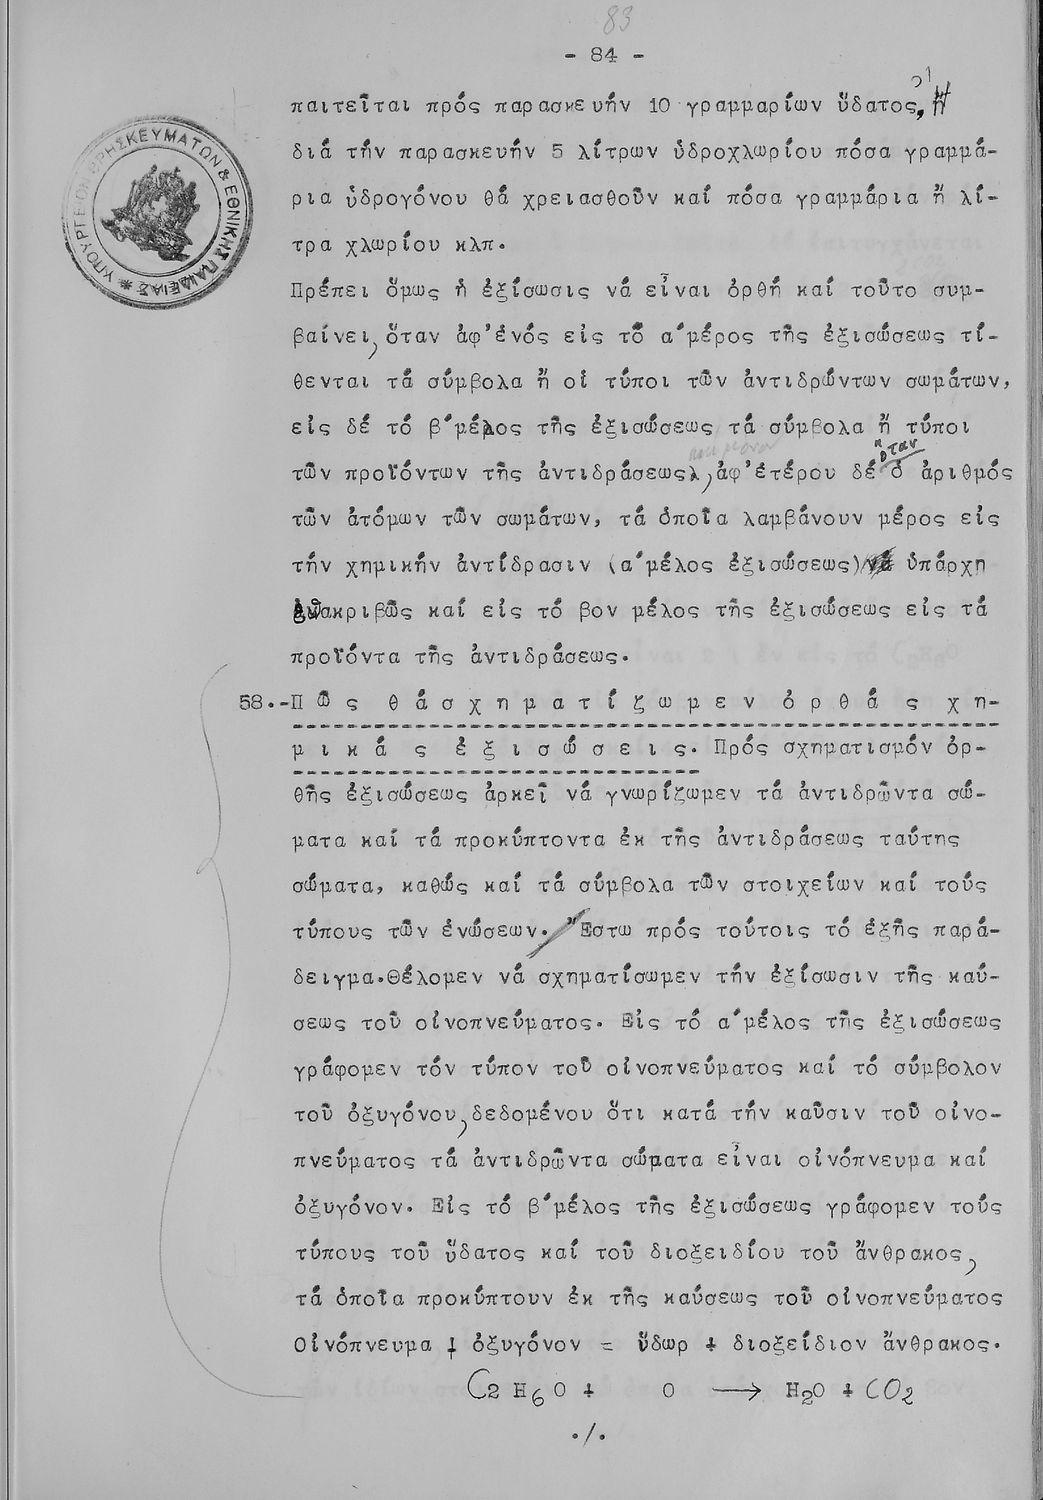 83
- 84 -
παιτεῖται πρός παρασκευήν 10 γραμμαρίων ὕδατος, ἤ
διά τήν παρασκευήν 5 λίτρων ὑδροχλωρίου πόσα γραμμά-
ρια ὑδρογόνου θά χρειασθοῦν καί πόσα γραμμάρια ἤ λί-
τρα χλωρίου κλπ.
Πρέπει ὅμως ἡ ἐξίσωσις νά εἶναι ὀρθή καί τοῦτο συμ-
βαίνει, ὅταν ἀφ'ἑνός εἰς τό α'μέρος τῆς ἐξισώσεως τί-
θενται τά σύμβολα ἤ οἱ τύποι τῶν ἀντιδρώντων σωμάτων,
εἰς δέ τό β'μέλος τῆς ἐξισώσεως τά σύμβολα ἤ τύποι
ὅταν
τῶν προϊόντων τῆς ἀντιδράσεως, ἀφ'ἑτέρου δέ ὁ ἀριθμός
τῶν ἀτόμων τῶν σωμάτων, τά ὁποῖα λαμβάνουν μέρος εἰς
τήν χημικήν ἀντίδρασιν (α'μέλος ἐξισώσεως) νά ὑπάρχη
ἀκριβῶς καί εἰς τό βον μέλος τῆς ἐξισώσεως εἰς τά
προϊόντα τῆς ἀντιδράσεως.
58.-Πῶς θά σχηματίζωμεν ὀρθάς χη-
μικάς ἐξισώσεις. Πρός σχηματισμόν ὀρ-
θῆς ἐξισώσεως ἀρκεῖ νά γνωρίζωμεν τά ἀντιδρῶντα σώ-
ματα καί τά προκύπτοντα ἐκ τῆς ἀντιδράσεως ταύτης
σώματα, καθώς καί τά σύμβολα τῶν στοιχείων καί τούς
τύπους τῶν ἑνώσεων. Ἔστω πρός τούτοις τό ἑξῆς παρά-
δειγμα.Θέλομεν νά σχηματίσωμεν τήν ἐξίσωσιν τῆς καύ-
σεως τοῦ οἰνοπνεύματος. Εἰς τό α'μέλος τῆς ἐξισώσεως
γράφομεν τόν τύπον τοῦ οἰνοπνεύματος καί τό σύμβολον
τοῦ ὀξυγόνου, δεδομένου ὅτι κατά τήν καῦσιν τοῦ οἰνο-
πνεύματος τά ἀντιδρῶντα σώματα εἶναι οἰνόπνευμα καί
ὀξυγόνον. Εἰς τό β'μέλος τῆς ἐξισώσεως γράφομεν τούς
τύπους τοῦ ὕδατος καί τοῦ διοξειδίου τοῦ ἄνθρακος,
τά ὁποῖα προκύπτουν ἐκ τῆς καύσεως τοῦ οἰνοπνεύματος
Οἰνόπνευμα + ὀξυγόνον = ὕδωρ + διοξείδιον ἄνθρακος.
C2 H6 O + O → H2O + CO2
./.
ΥΠΟΥΡΓΕΙΟΝ ΘΡΗΣΚΕΥΜΑΤΩΝ & ΕΘΝΙΚΗΣ ΠΑΙΔΕΙΑΣ